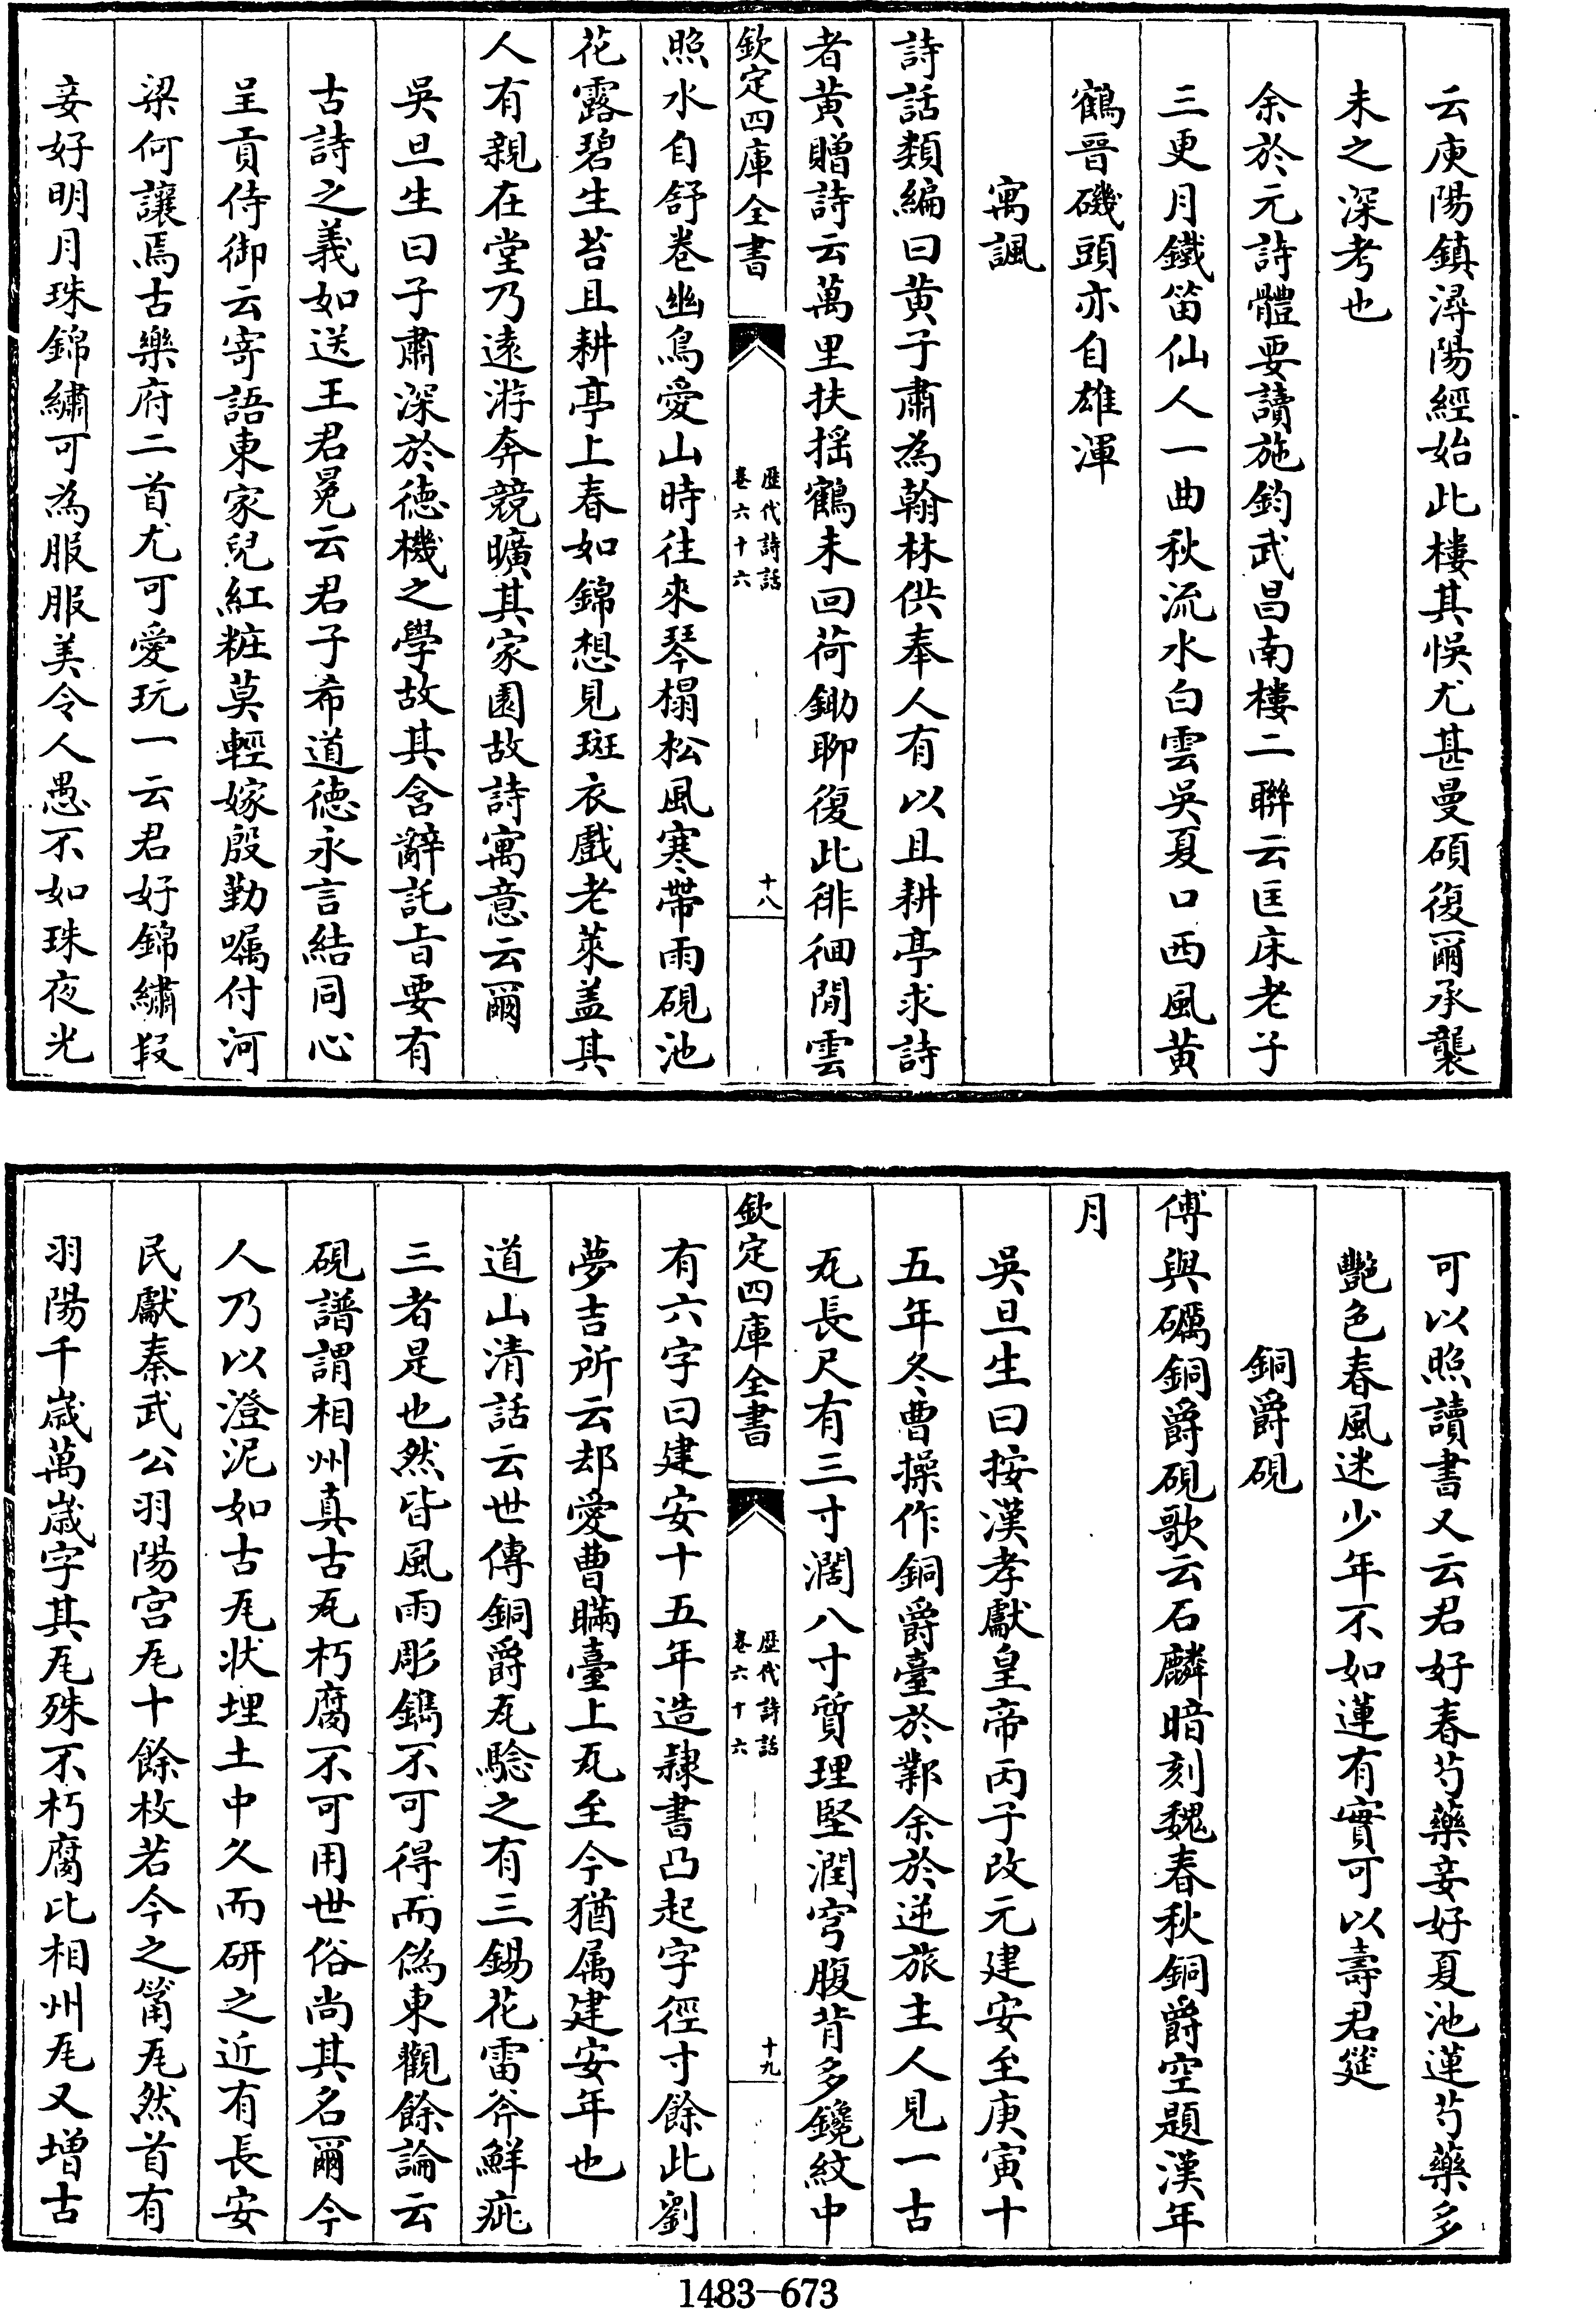 云庾陽鎮潯陽經始此樓其悞尤甚曼碩復爾承襲
未之深考也
余於元詩體要讀施鈞武昌南樓二聯云匡床老子
三更月鐵笛仙人一曲秋流水白雲吳夏口西風黃
鶴晉磯頭亦自雄渾
寓諷
詩話類編曰黃子肅為翰林供奉人有以且耕亭求詩
者黃贈詩云萬里扶搖鶴未回荷鋤聊復此徘徊閒雲
欽定四庫全書
歷代詩話
卷六十六
十八
照水自舒卷幽鳥愛山時往來琴榻松風寒帶雨硯池
花露碧生苔且耕亭上春如錦想見斑衣戲老萊蓋其
人有親在堂乃遠游奔競曠其家園故詩寓意云爾
吳旦生曰子肅深於德機之學故其含辭託旨要有
古詩之義如送王君冕云君子希道德永言結同心
呈貢侍御云寄語東家兒紅粧莫輕嫁殷勤囑付河
梁何讓焉古樂府二首尤可愛玩一云君好錦繡叚
妾好明月珠錦繡可為服服美令人愚不如珠夜光
可以照讀書又云君好春芍藥妾好夏池蓮芍藥多
艷色春風迷少年不如蓮有實可以壽君筵
銅爵硯
傅與礪銅爵硯歌云石麟暗刻魏春秋銅爵空題漢年
月
吳旦生曰按漢孝獻皇帝丙子改元建安至庚寅十
五年冬曹操作銅爵臺於鄴余於逆旅主人見一古
瓦長尺有三寸濶八寸質理堅潤穹腹背多鑱紋中
欽定四庫全書
歷代詩話
卷六十六
十九
有六字曰建安十五年造隷書凸起字徑寸餘此劉
夢吉所云却愛曹瞞臺上瓦至今猶屬建安年也
道山清話云世傳銅爵瓦驗之有三錫花雷斧鮮疵
三者是也然皆風雨彫鐫不可得而偽東觀餘論云
硯譜謂相州真古瓦朽腐不可用世俗尚其名爾今
人乃以澄泥如古瓦狀埋土中久而研之近有長安
民獻秦武公羽陽宮瓦十餘枚若今之筩瓦然首有
羽陽千歲萬歲字其瓦殊不朽腐比相州瓦又增古
1483-673